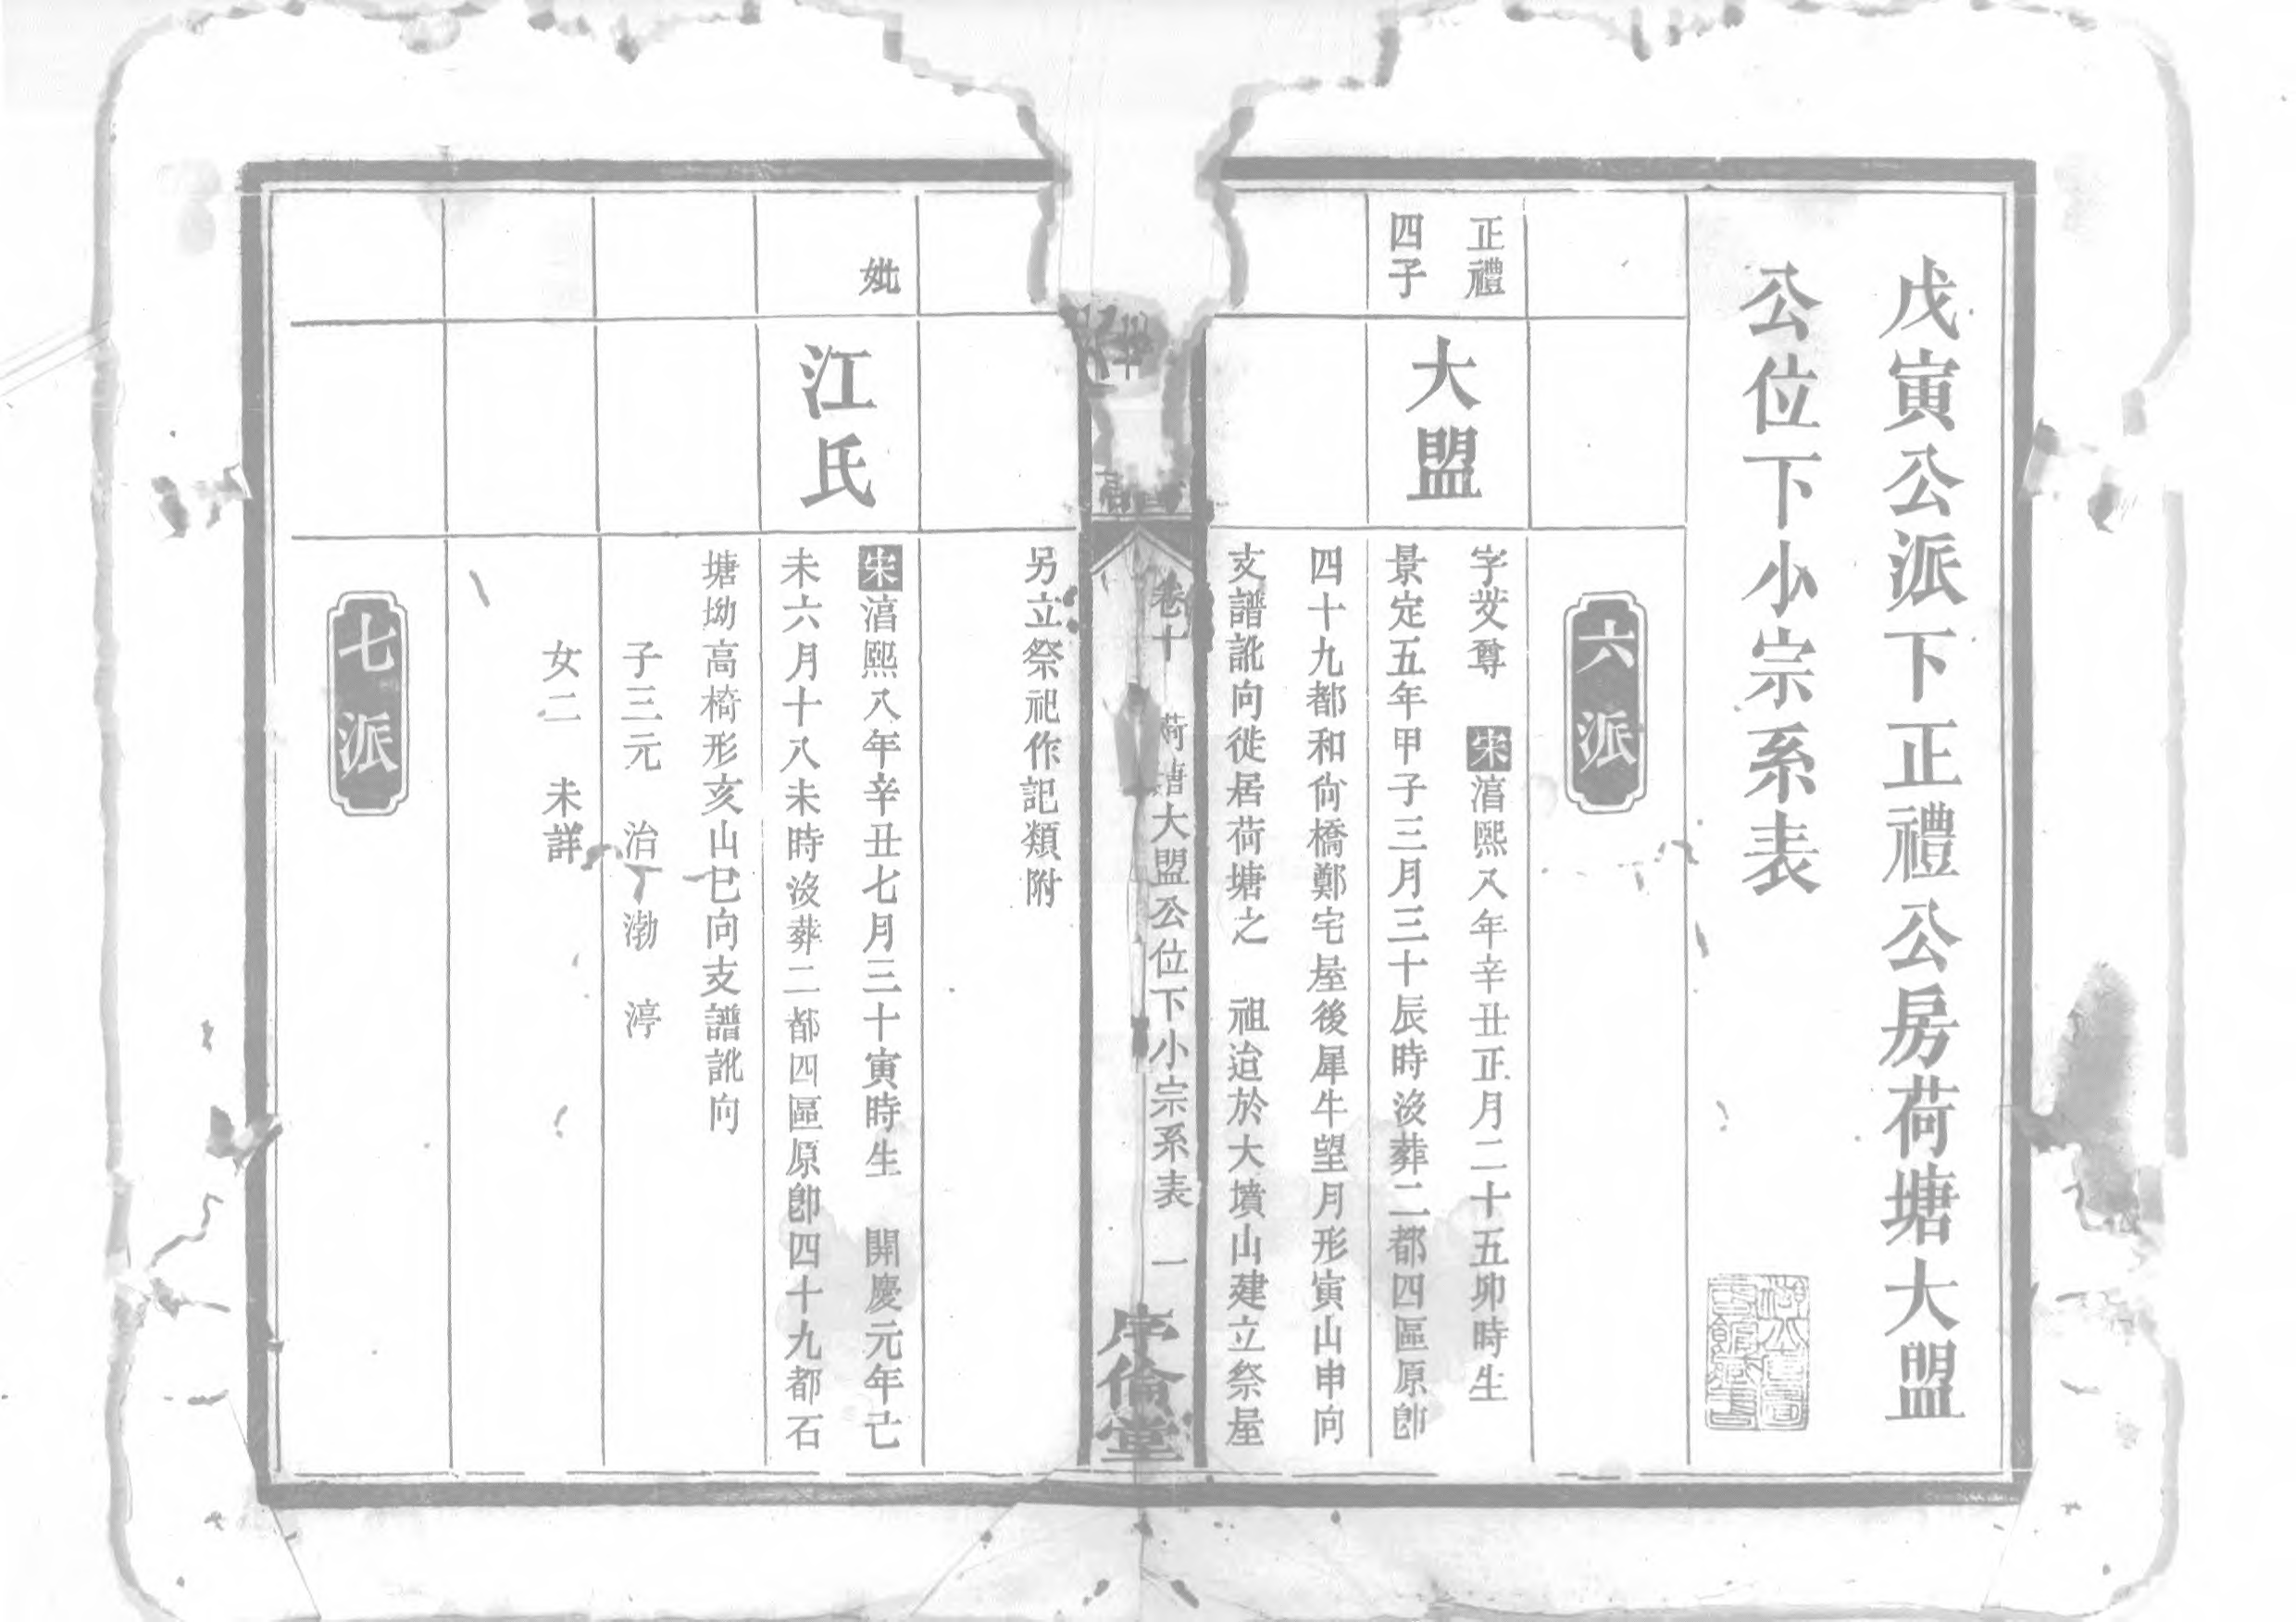 戊寅公派下正禮公房荷塘大盟
公位下小宗系表
六派
正禮
四子
大盟
字艾尊　宋㵮熙八年辛丑正月二十五卯時生
景定五年甲子三月三十辰時沒葬二都四區原卽
四十九都和尙橋鄭宅屋後犀牛望月形寅山申向
支譜訛向徙居荷塘之　祖迨於大墳山建立祭屋
卷十　荷塘大盟公位下小宗系表　一
序倫堂
另立祭祀作記類附
妣
江氏
宋㵮熙八年辛丑七月三十寅時生　開慶元年己
未六月十八未時沒葬二都四區原卽四十九都石
塘坳高椅形亥山巳向支譜訛向
子三元　治　渤　渟
女二　未詳
七派